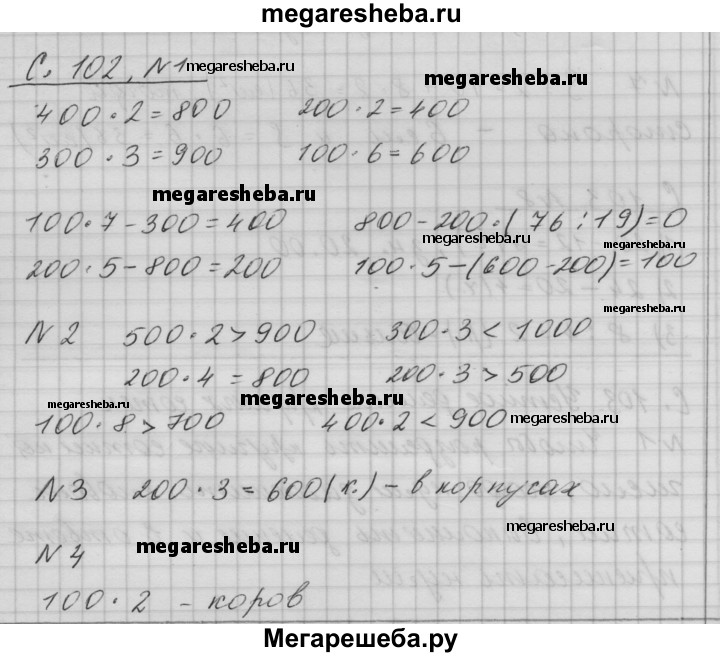 megaresheba.ru
С. 102, №1 megaresheba.ru
megaresheba.ru
400 · 2 = 800 200 · 2 = 400
300 · 3 = 900 100 · 6 = 600
megaresheba.ru
100 · 7 - 300 = 400 800 - 200 · (76 : 19) = 0
megaresheba.ru megaresheba.ru
200 · 5 - 800 = 200 100 · 5 - (600 - 200) = 100
megaresheba.ru
№2 500 · 2 > 900 300 · 3 < 1000
200 · 4 = 800 200 · 3 > 500
megaresheba.ru megaresheba.ru
100 · 8 > 700 400 · 2 < 900 megaresheba.ru
№3 200 · 3 = 600 (к.) - в корпусах
megaresheba.ru
№4 megaresheba.ru
100 · 2 - коров
Мегарешеба.ру